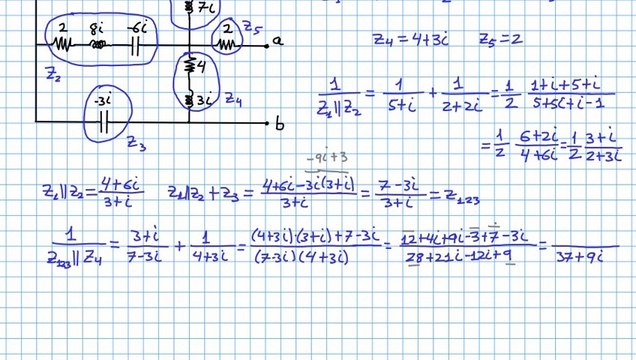 7i
2 8i -6i 2 z₅ a
z₂
4
3i z₄
-3i
z₃
b
z₄ = 4+3i z₅ = 2
1/(z₁∥z₂) = 1/(5+i) + 1/(2+2i) = 1/2 (1+i+5+i)/(5+5i+i-1)
= 1/2 (6+2i)/(4+6i) = 1/2 (3+i)/(2+3i)
-9i+3
z₁∥z₂ = (4+6i)/(3+i) z₁∥z₂ + z₃ = (4+6i-3i(3+i))/(3+i) = (7-3i)/(3+i) = z₁₂₃
1/(z₁₂₃∥z₄) = (3+i)/(7-3i) + 1/(4+3i) = ((4+3i)·(3+i)+7-3i)/((7-3i)(4+3i)) = (12+4i+9i-3+7-3i)/(28+21i-12i+9) = /(37+9i)